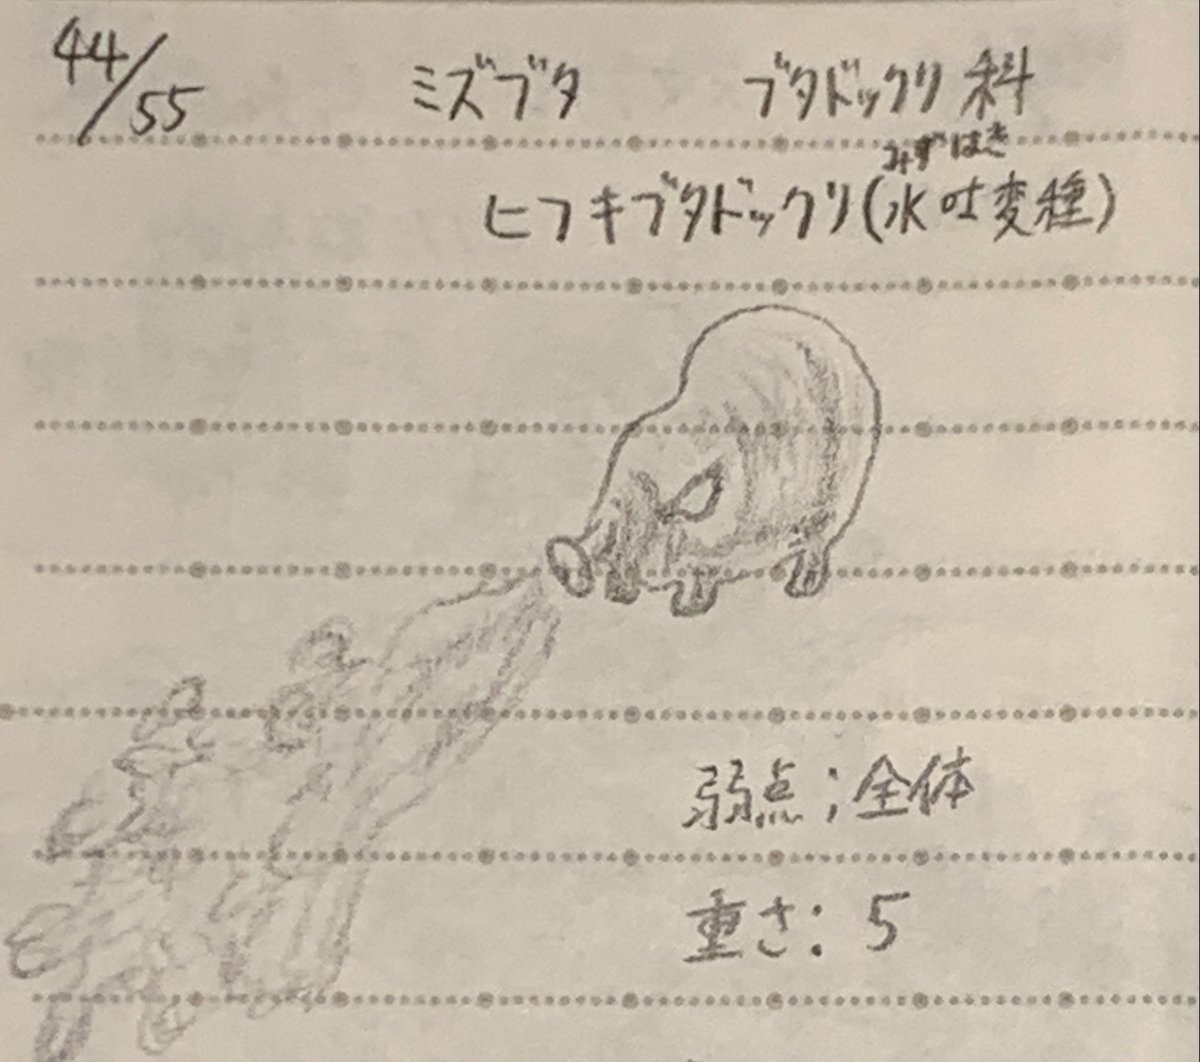 44/55 ミズブタ ブタドックリ科
みずはき
ヒフキブタドックリ(水吐変種)
弱点;全体
重さ: 5